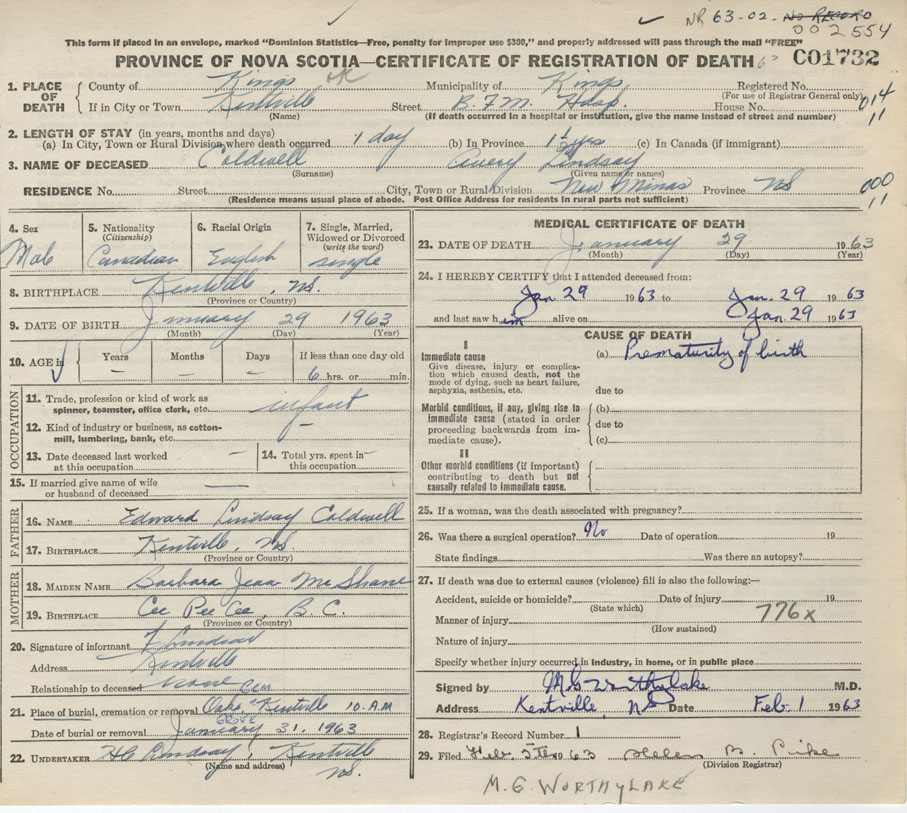 NR 63-02- No Record
002554
This form if placed in an envelope, marked "Dominion Statistics—Free, penalty for improper use $300," and properly addressed will pass through the mail "FREE"
PROVINCE OF NOVA SCOTIA—CERTIFICATE OF REGISTRATION OF DEATH CO1732
1. PLACE OF DEATH County of Kings Municipality of Kings Registered No.
(For use of Registrar General only) 014
If in City or Town Kentville Street B.F.M. Hosp. House No. 11
(Name) (If death occurred in a hospital or institution, give the name instead of street and number)
2. LENGTH OF STAY (in years, months and days)
(a) In City, Town or Rural Division where death occurred 1 day (b) In Province (c) In Canada (if immigrant)
3. NAME OF DECEASED Coldwell Avery Lindsay
(Surname) (Given name or names)
RESIDENCE No. Street City, Town or Rural Division New Minas Province NS 000
(Residence means usual place of abode. Post Office Address for residents in rural parts not sufficient) 11
4. Sex Male
5. Nationality (Citizenship) Canadian
6. Racial Origin English
7. Single, Married, Widowed or Divorced (write the word) single
8. BIRTHPLACE Kentville, NS.
(Province or Country)
9. DATE OF BIRTH January 29 1963
(Month) (Day) (Year)
10. AGE is Years — Months — Days — If less than one day old 6 hrs. or min.
OCCUPATION
11. Trade, profession or kind of work as spinner, teamster, office clerk, etc. infant
12. Kind of industry or business, as cotton-mill, lumbering, bank, etc. —
13. Date deceased last worked at this occupation —
14. Total yrs. spent in this occupation —
15. If married give name of wife or husband of deceased —
FATHER
16. NAME Edward Lindsay Coldwell
17. BIRTHPLACE Kentville, NS.
(Province or Country)
MOTHER
18. MAIDEN NAME Barbara Jean McShane
19. BIRTHPLACE Cee Pee Cee, B.C.
(Province or Country)
20. Signature of informant Lindsay
Address Kentville
Relationship to deceased none
21. Place of burial, cremation or removal Oak GROVE Cem Kentville 10.AM
Date of burial or removal January 31, 1963
22. UNDERTAKER Lindsay, Kentville
(Name and address) NS.
MEDICAL CERTIFICATE OF DEATH
23. DATE OF DEATH January 29 1963
(Month) (Day) (Year)
24. I HEREBY CERTIFY that I attended deceased from:
Jan 29 1963 to Jan. 29 1963
and last saw him alive on Jan. 29 1963
CAUSE OF DEATH
I
Immediate cause (a) Prematurity of birth
Give disease, injury or complication which caused death, not the mode of dying, such as heart failure, asphyxia, asthenia, etc. due to
Morbid conditions, if any, giving rise to immediate cause (stated in order proceeding backwards from immediate cause). (b)
due to
(c)
II
Other morbid conditions (if important) contributing to death but not causally related to immediate cause.
25. If a woman, was the death associated with pregnancy?
26. Was there a surgical operation? No Date of operation 19
State findings Was there an autopsy?
27. If death was due to external causes (violence) fill in also the following:—
Accident, suicide or homicide? Date of injury 19
(State which)
Manner of injury 776x
(How sustained)
Nature of injury
Specify whether injury occurred in industry, in home, or in public place
Signed by M.G. Worthylake M.D.
Address Kentville, NS Date Feb. 1 1963
28. Registrar's Record Number 1
29. Filed Feb. 5 1963 Helen B. Pike
(Division Registrar)
M.G. WORTHYLAKE